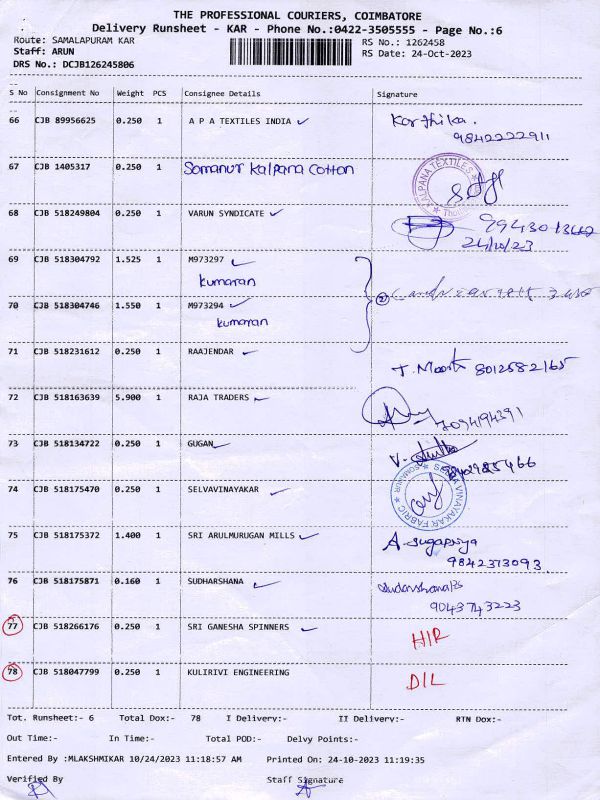 THE PROFESSIONAL COURIERS, COIMBATORE
Delivery Runsheet - KAR - Phone No.:0422-3505555 - Page No.:6
Route: SAMALAPURAM KAR
RS No.: 1262458
Staff: ARUN
RS Date: 24-Oct-2023
DRS No.: DCJB126245806
S No Consignment No Weight PCS Consignee Details Signature
66 CJB 89956625 0.250 1 A P A TEXTILES INDIA Karthika.
9842222911
67 CJB 1405317 0.250 1 Somanur Kalpana Cotton
KALPANA TEXTILES
68 CJB 518249804 0.250 1 VARUN SYNDICATE
24/10/23
69 CJB 518304792 1.525 1 M973297
Kumaran
70 CJB 518304746 1.550 1 M973294
Kumaran
71 CJB 518231612 0.250 1 RAAJENDAR
8012582165
72 CJB 518163639 5.900 1 RAJA TRADERS
7094194391
73 CJB 518134722 0.250 1 GUGAN
74 CJB 518175470 0.250 1 SELVAVINAYAKAR
VINAYAKAR FABRIC
SOMANUR
75 CJB 518175372 1.400 1 SRI ARULMURUGAN MILLS A-Sugapriya
9842373093
76 CJB 518175871 0.160 1 SUDHARSHANA
9043743223
77 CJB 518266176 0.250 1 SRI GANESHA SPINNERS HIR
78 CJB 518047799 0.250 1 KULIRIVI ENGINEERING DIL
Tot. Runsheet:- 6 Total Dox:- 78 I Delivery:- II Delivery:- RTN Dox:-
Out Time:- In Time:- Total POD:- Delvy Points:-
Entered By :MLAKSHMIKAR 10/24/2023 11:18:57 AM Printed On: 24-10-2023 11:19:35
Verified By Staff Signature